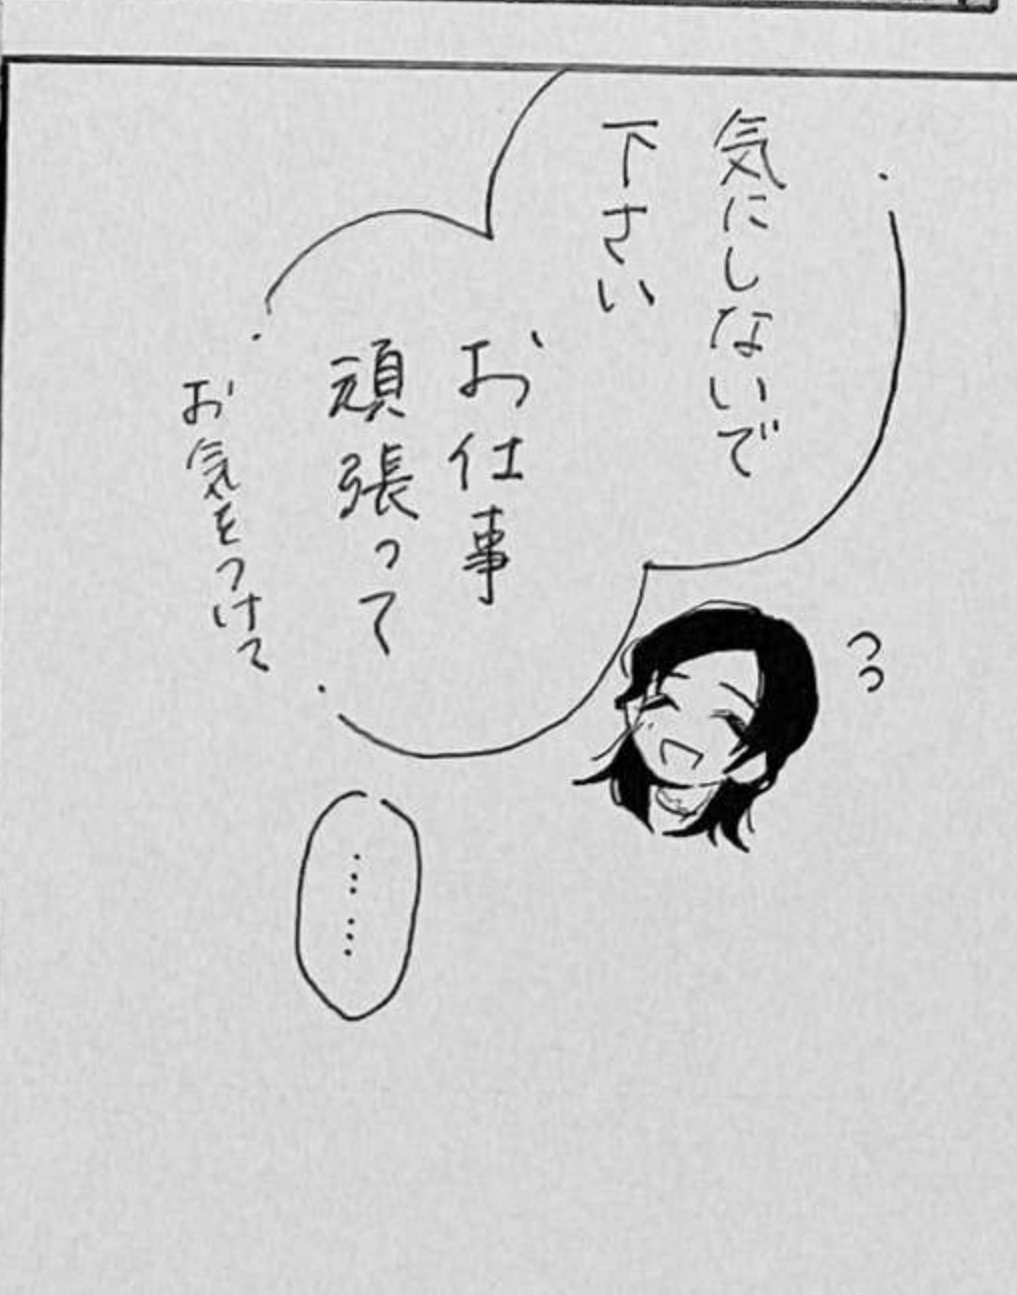 気にしないで
下さい
お仕事
頑張って
お気をつけて
……